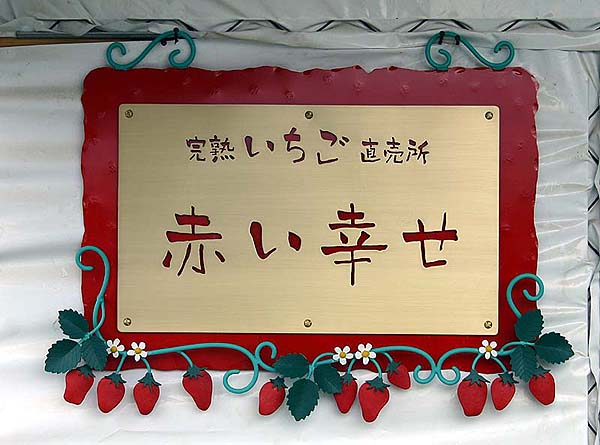 完熟いちご直売所
赤い幸せ